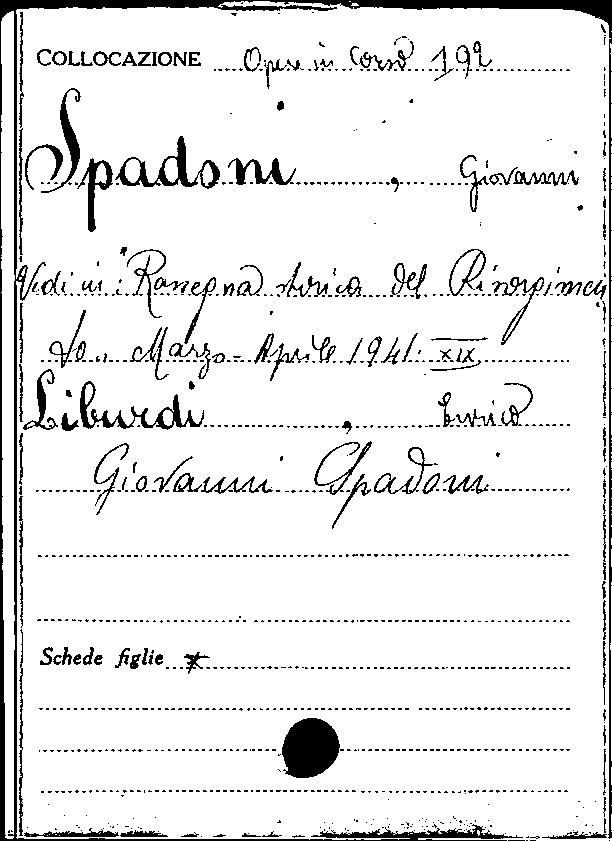 COLLOCAZIONE Opere in Corso 192
Spadoni, Giovanni
Vedi in: "Rassegna storica del Risorgimen
to" Marzo-Aprile 1941. XIX
Liburdi, Enrico
Giovanni Spadoni
Schede figlie *